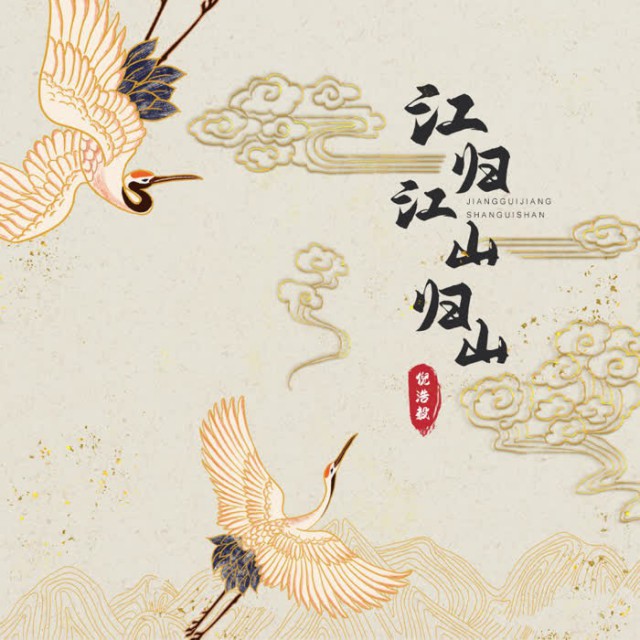 江归江
山归山
JIANGGUIJIANG
SHANGUISHAN
倪浩毅